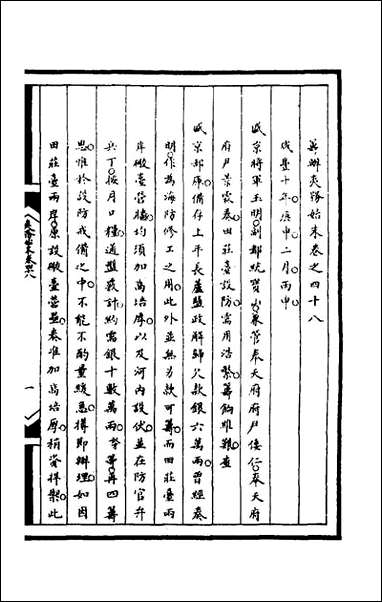 籌辦夷務始末卷之四十八
咸豐十年庚申二月丙申
盛京將軍玉明副都統景霖兼管奉天府府尹倭仁奉天府
府尹景霖奏田莊臺設防需用浩繁籌餉維艱查
盛京部庫備存上年長蘆鹽政解歸欠款銀六萬兩曾經奏
明作為海防修工之用此外並無另款可籌而田莊臺兩
岸礮臺營牆均須加高培厚以及河內設伏並在防官弁
兵丁按月口糧通盤覈計約需銀十數萬兩督等再四籌
思惟於設防戒備之中不能不酌量緩急擇即辦理如因
田莊臺兩岸原設礮臺營壘奏准加高培厚稍資捍禦此
夷務始末卷四八
一